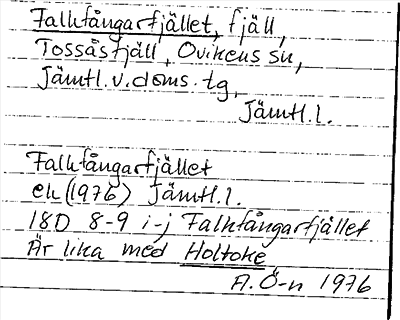 Falkfångarfjället, fjäll,
Tossåsfjäll, Ovikens sn,
Jämtl.v.doms.tg,
Jämtl.l.
Falkfångarfjället
ek (1976) Jämtl.l.
18D 8-9 i-j Falkfångarfjället
Är lika med Holtoke
A.Ö-n 1976